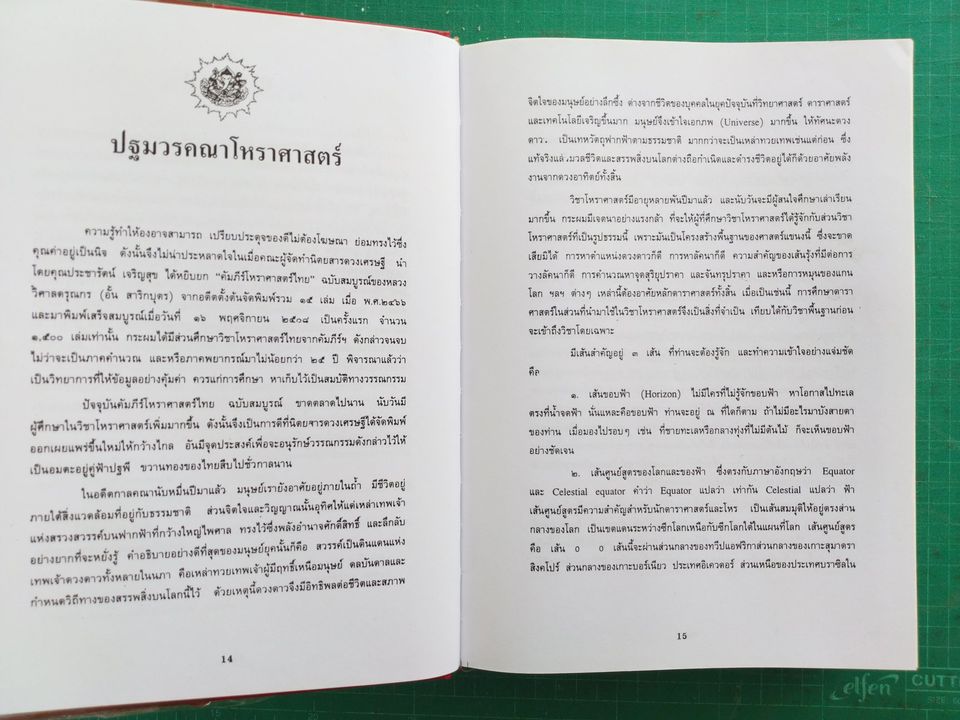 ปฐมวรคณาโหราศาสตร์
ความรู้ทำให้องอาจสามารถ เปรียบประดุจของดีไม่ต้องโฆษณา ย่อมทรงไว้ซึ่ง
คุณค่าอยู่เป็นนิจ ดังนั้นจึงไม่น่าประหลาดใจในเมื่อคณะผู้จัดทำนิตยสารดวงเศรษฐี นำ
โดยคุณประชารัตน์ เจริญสุข ได้หยิบยก "คัมภีร์โหราศาสตร์ไทย" ฉบับสมบูรณ์ของหลวง
วิศาลดรุณกร (อั้น สาริกบุตร) จากอดีตตั้งต้นจัดพิมพ์รวม ๑๕ เล่ม เมื่อ พ.ศ.๒๔๖๖
และมาพิมพ์เสร็จสมบูรณ์เมื่อวันที่ ๑๖ พฤศจิกายน ๒๕๐๘ เป็นครั้งแรก จำนวน
๑,๕๐๐ เล่มเท่านั้น กระผมได้มีส่วนศึกษาวิชาโหราศาสตร์ไทยจากคัมภีร์ฯ ดังกล่าวจนจบ
ไม่ว่าจะเป็นภาคคำนวณ และหรือภาคพยากรณ์มาไม่น้อยกว่า ๒๕ ปี พิจารณาแล้วว่า
เป็นวิทยาการที่ให้ข้อมูลอย่างคุ้มค่า ควรแก่การศึกษา หาเก็บไว้เป็นสมบัติทางวรรณกรรม
ปัจจุบันคัมภีร์โหราศาสตร์ไทย ฉบับสมบูรณ์ ขาดตลาดไปนาน นับวันมี
ผู้ศึกษาในวิชาโหราศาสตร์เพิ่มมากขึ้น ดังนั้นจึงเป็นการดีที่นิตยสารดวงเศรษฐีได้จัดพิมพ์
ออกเผยแพร่ขึ้นใหม่ให้กว้างไกล อันมีจุดประสงค์เพื่อจะอนุรักษ์วรรณกรรมดังกล่าวไว้ให้
เป็นอมตะอยู่คู่ฟ้าปฐพี ขวานทองของไทยสืบไปชั่วกาลนาน
ในอดีตกาลคณานับหมื่นปีมาแล้ว มนุษย์เรายังอาศัยอยู่ภายในถ้ำ มีชีวิตอยู่
ภายใต้สิ่งแวดล้อมที่อยู่กับธรรมชาติ ส่วนจิตใจและวิญญาณนั้นอุทิศให้แด่เหล่าเทพเจ้า
แห่งสรวงสวรรค์บนฟากฟ้าที่กว้างใหญ่ไพศาล ทรงไว้ซึ่งพลังอำนาจศักดิ์สิทธิ์ และลึกลับ
อย่างยากที่จะหยั่งรู้ คำอธิบายอย่างดีที่สุดของมนุษย์ยุคนั้นก็คือ สวรรค์เป็นดินแดนแห่ง
เทพเจ้าดวงดาวทั้งหลายในนภา คือเหล่าทวยเทพเจ้าผู้มีฤทธิ์เหนือมนุษย์ ดลบันดาลและ
กำหนดวิถีทางของสรรพสิ่งบนโลกนี้ไว้ ด้วยเหตุนี้ดวงดาวจึงมีอิทธิพลต่อชีวิตและสภาพ
14
จิตใจของมนุษย์อย่างลึกซึ้ง ต่างจากชีวิตของบุคคลในยุคปัจจุบันที่วิทยาศาสตร์ ดาราศาสตร์
และเทคโนโลยีเจริญขึ้นมาก มนุษย์จึงเข้าใจเอกภพ (Universe) มากขึ้น ให้ทัศนะดวง
ดาว. เป็นเทหวัตถุฟากฟ้าตามธรรมชาติ มากกว่าจะเป็นเหล่าทวยเทพเช่นแต่ก่อน ซึ่ง
แท้จริงแล้วมวลชีวิตและสรรพสิ่งบนโลกต่างถือกำเนิดและดำรงชีวิตอยู่ได้ก็ด้วยอาศัยพลัง
งานจากดวงอาทิตย์ทั้งสิ้น
วิชาโหราศาสตร์มีอายุหลายพันปีมาแล้ว และนับวันจะมีผู้สนใจศึกษาเล่าเรียน
มากขึ้น กระผมมีเจตนาอย่างแรงกล้า ที่จะให้ผู้ที่ศึกษาวิชาโหราศาสตร์ได้รู้จักกับส่วนวิชา
โหราศาสตร์ที่เป็นรูปธรรมนี้ เพราะมันเป็นโครงสร้างพื้นฐานของศาสตร์แขนงนี้ ซึ่งจะขาด
เสียมิได้ การหาตำแหน่งดวงดาวก็ดี การหาลัคนาก็ดี ความสำคัญของเส้นรุ้งที่มีต่อการ
วางลัคนาก็ดี การคำนวณหาจุดสุริยุปราคา และจันทรุปราคา และหรือการหมุนของแกน
โลก ฯลฯ ต่างๆ เหล่านี้ต้องอาศัยหลักดาราศาสตร์ทั้งสิ้น เมื่อเป็นเช่นนี้ การศึกษาดารา
ศาสตร์ในส่วนที่นำมาใช้ในวิชาโหราศาสตร์จึงเป็นสิ่งที่จำเป็น เทียบได้กับวิชาพื้นฐานก่อน
จะเข้าถึงวิชาโดยเฉพาะ
มีเส้นสำคัญอยู่ ๓ เส้น ที่ท่านจะต้องรู้จัก และทำความเข้าใจอย่างแจ่มชัด
คือ
๑. เส้นขอบฟ้า (Horizon) ไม่มีใครที่ไม่รู้จักขอบฟ้า หาโอกาสไปทะเล
ตรงที่น้ำจดฟ้า นั่นแหละคือขอบฟ้า ท่านจะอยู่ ณ ที่ใดก็ตาม ถ้าไม่มีอะไรมาบังสายตา
ของท่าน เมื่อมองไปรอบๆ เช่น ที่ชายทะเลหรือกลางทุ่งที่ไม่มีต้นไม้ ก็จะเห็นขอบฟ้า
อย่างชัดเจน
๒. เส้นศูนย์สูตรของโลกและของฟ้า ซึ่งตรงกับภาษาอังกฤษว่า Equator
และ Celestial equator คำว่า Equator แปลว่า เท่ากัน Celestial แปลว่า ฟ้า
เส้นศูนย์สูตรมีความสำคัญสำหรับนักดาราศาสตร์และโหร เป็นเส้นสมมุติให้อยู่ตรงส่วน
กลางของโลก เป็นเขตแดนระหว่างซีกโลกเหนือกับซีกโลกใต้ในแผนที่โลก เส้นศูนย์สูตร
คือ เส้น ๐ ๐ เส้นนี้จะผ่านส่วนกลางของทวีปแอฟริกาส่วนกลางของเกาะสุมาตรา
สิงคโปร์ ส่วนกลางของเกาะบอร์เนียว ประเทศอิเควดอร์ ส่วนเหนือของประเทศบราซิลใน
15
elfen CUTT